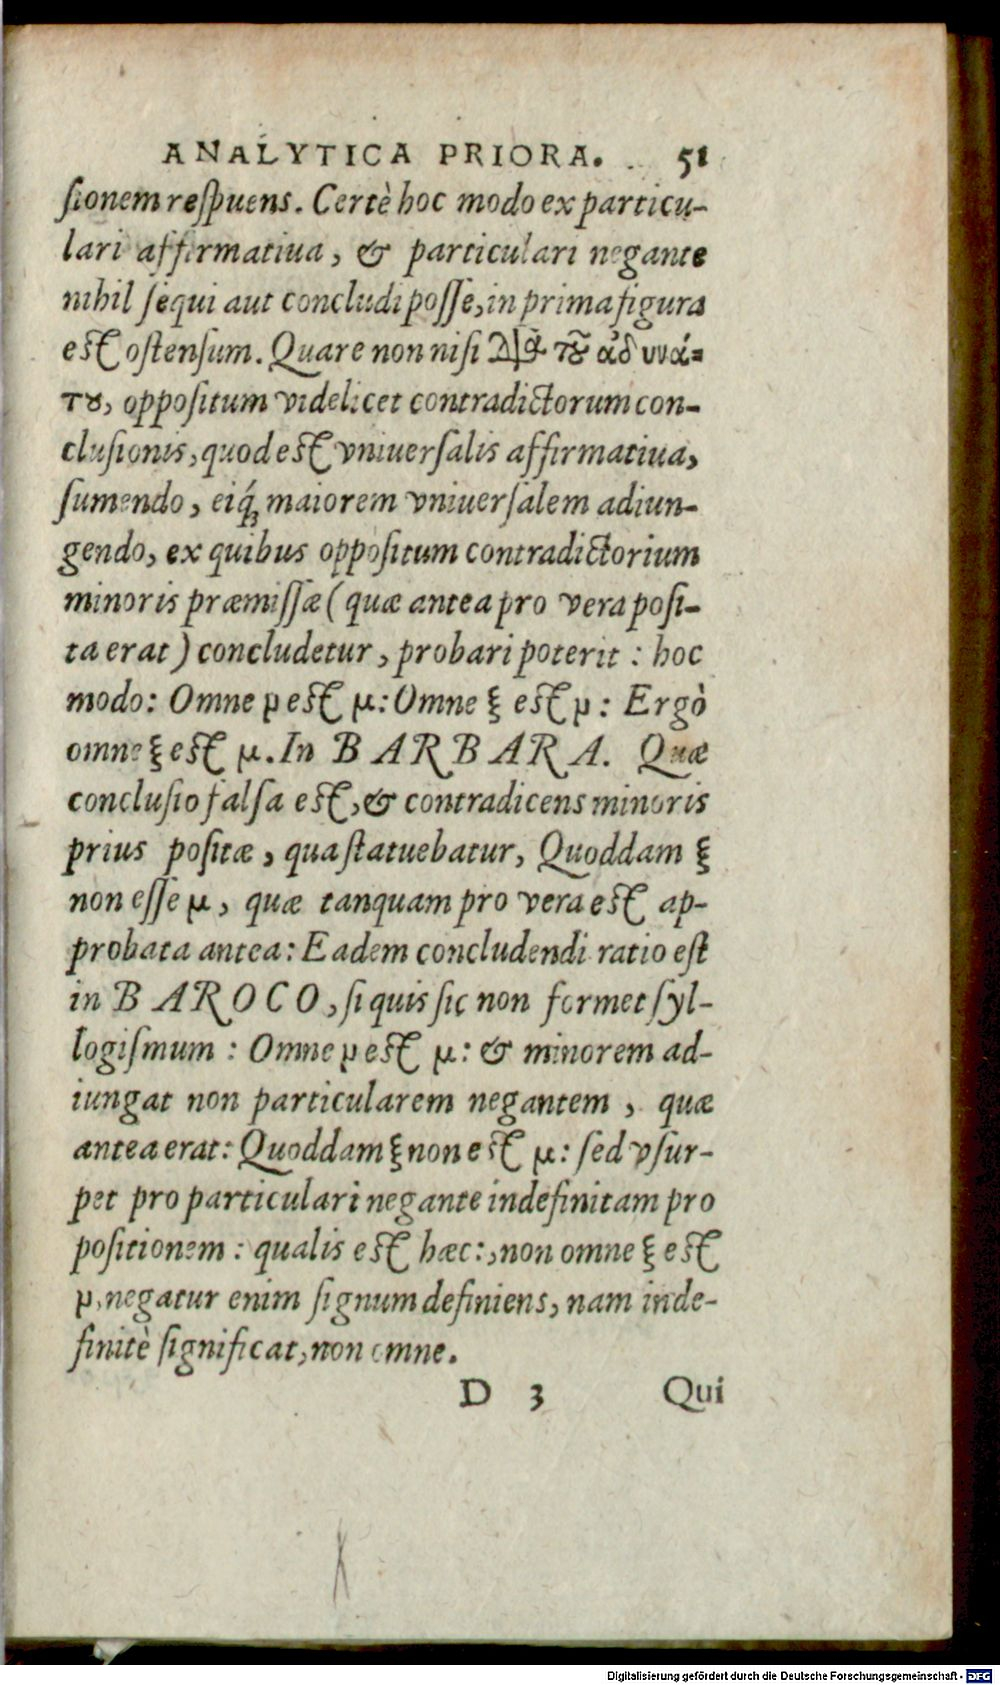 ANALYTICA PRIORA. 51
sionem respuens. Certè hoc modo ex particu-
lari affirmatiua, & particulari negante
nihil sequi aut concludi posse, in prima figura
est ostensum. Quare non nisi διὰ τοῦ ἀδυνά-
του, oppositum videlicet contradictorum con-
clusionis, quod est vniuersalis affirmatiua,
sumendo, eiq́; maiorem vniuersalem adiun-
gendo, ex quibus oppositum contradictorium
minoris præmissæ (quæ antea pro vera posi-
ta erat) concludetur, probari poterit: hoc
modo: Omne ν est μ: Omne ξ est ν: Ergò
omne ξ est μ. In BARBARA. Quæ
conclusio falsa est, & contradicens minoris
prius positæ, qua statuebatur, Quoddam ξ
non esse μ, quæ tanquam pro vera est ap-
probata antea: Eadem concludendi ratio est
in BAROCO, si quis sic non formet syl-
logismum: Omne ν est μ: & minorem ad-
iungat non particularem negantem, quæ
antea erat: Quoddam ξ non est μ: sed vsur-
pet pro particulari negante indefinitam pro
positionem: qualis est hæc:, non omne ξ est
ν, negatur enim signum definiens, nam inde-
finitè significat, non omne.
D 3 Qui
Digitalisierung gefördert durch die Deutsche Forschungsgemeinschaft - DFG